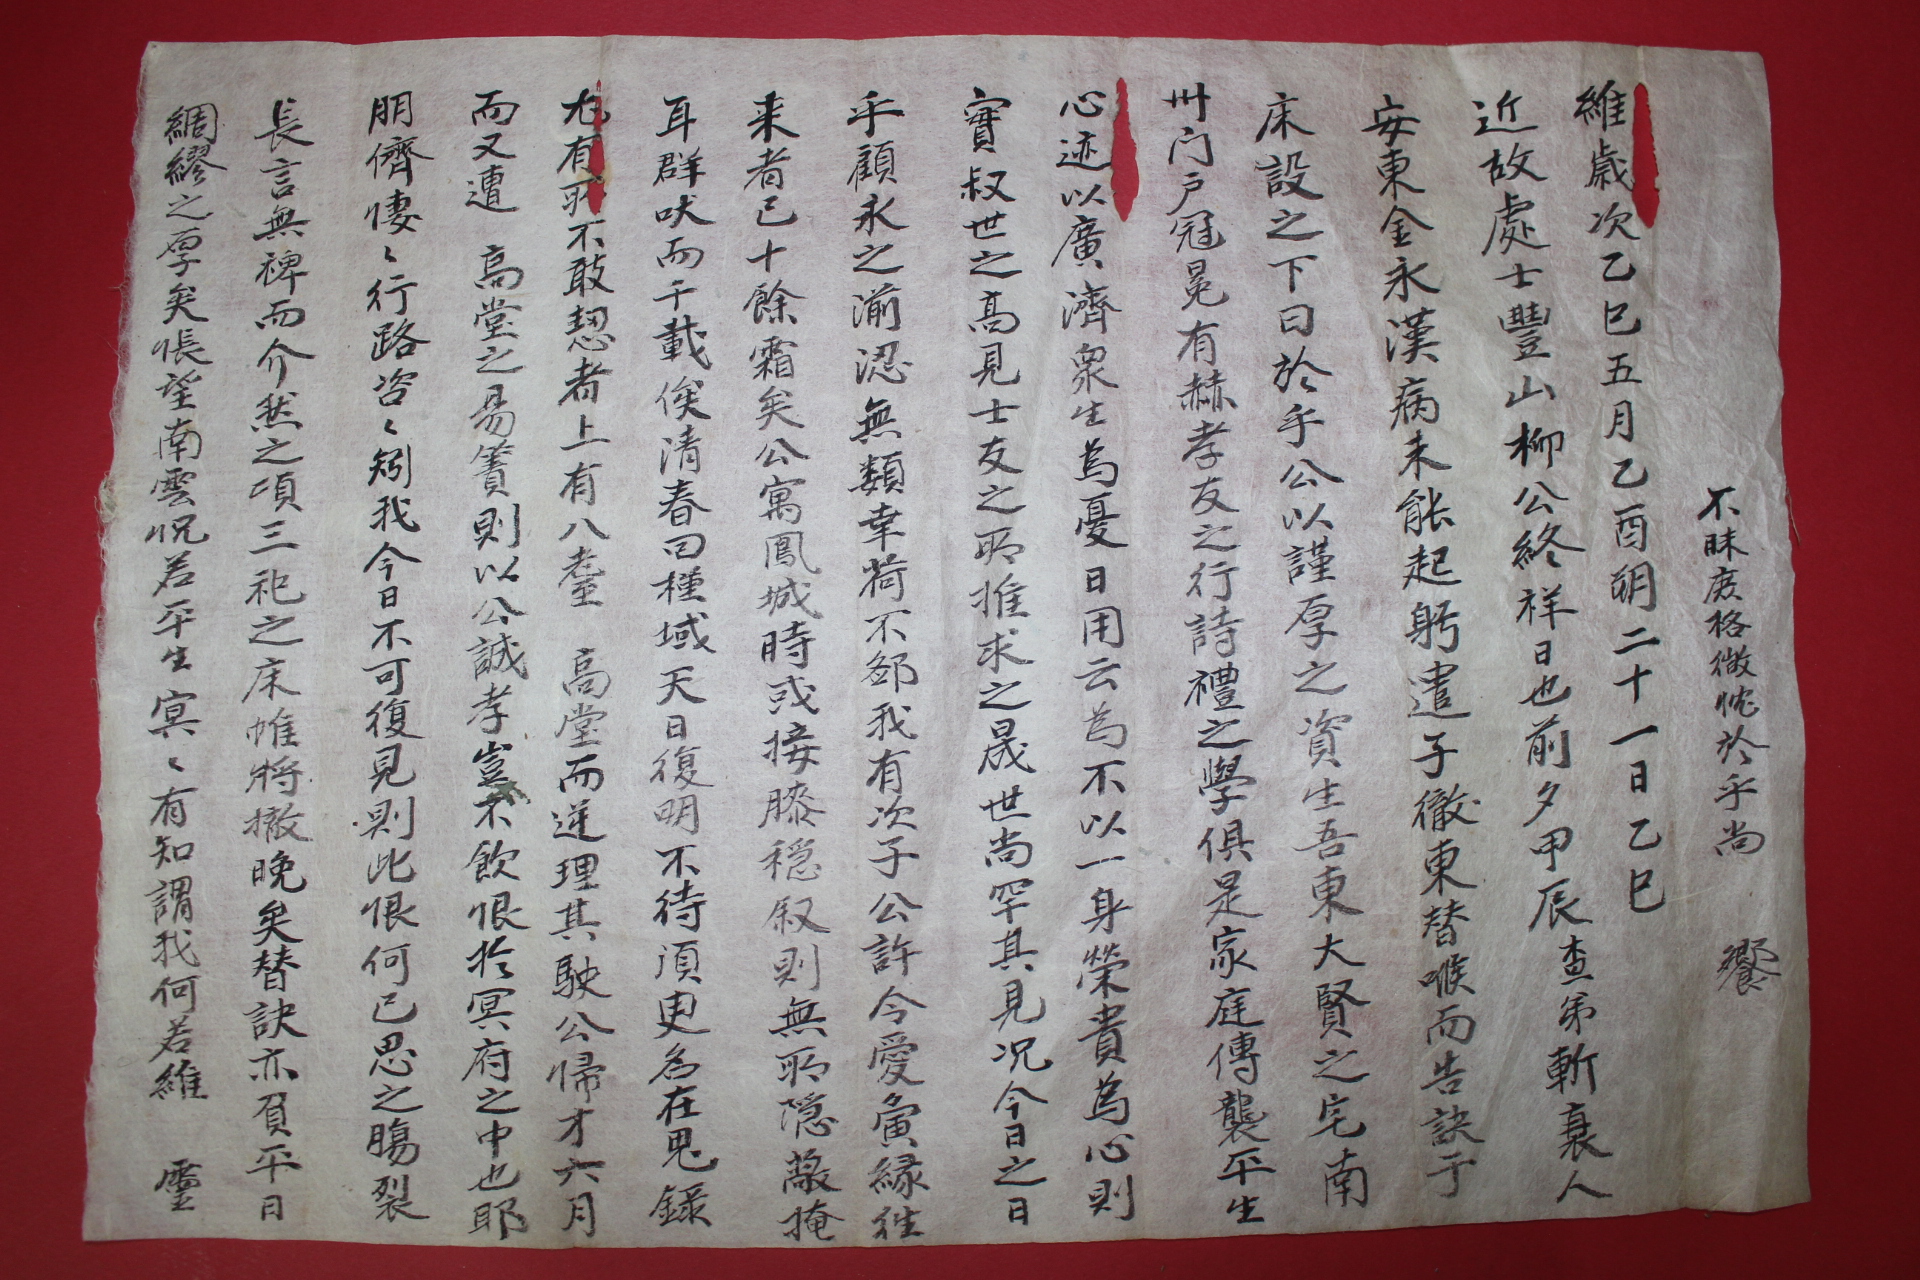 維歲次乙巳五月乙酉朔二十一日乙巳
近故處士豐山柳公終祥日也前夕甲辰査弟斬衰人
安東金永漢病未能起躬遣子徹東替喉而告訣于
床設之下曰於乎公以謹厚之資生吾東大賢之宅南
州门戶冠冕有赫孝友之行詩禮之學俱是家庭傳襲平生
心迹以廣濟衆生為憂日用云為不以一身榮貴為心則
實叔世之高見士友之所推求之晟世尚罕其見况今日之日
乎顧永之湔涊無類幸荷不鄙我有次子公許今愛夤緣往
来者已十餘霜矣公寓鳳城時或接膝穩叙則無所隱蔽掩
耳群吠而千載俟清春回槿域天日復明不待須更為在鬼錄
尤有所不敢恝者上有八耋 高堂而逆理其駛公歸才六月
而又遭 高堂之易簀則以公誠孝豈不飲恨於冥府之中也耶
朋儕悽〻行路咨〻矧我今日不可復見則此恨何已思之腸裂
長言無裨而介然之頃三祀之床帷將撤晚矣替訣亦負平日
綢繆之厚矣悵望南雲怳若平生冥〻有知謂我何若維 靈
不昧庶格微忱於乎尚 饗